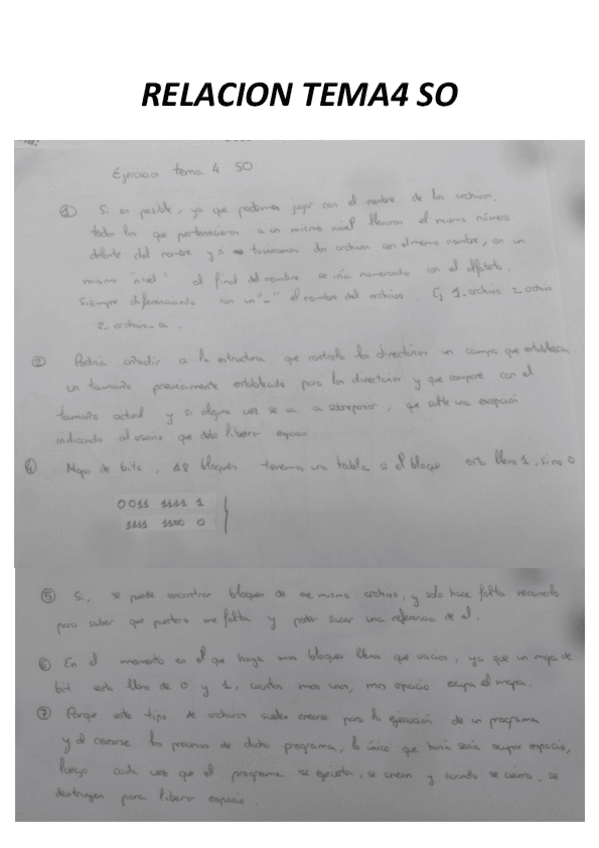 RELACION TEMA4 SO
Ejercicios tema 4 SO
① Si es posible, ya que podemos jugar con el nombre de los archivos.
todos los que pertenecieran a un mismo nivel llevaran el mismo número
delante del nombre y si tuvieramos dos archivos con el mismo nombre, en un
mismo "nivel" al final del nombre se iria numerando con el alfabeto.
Siempre diferenciando con un "_" el nombre del archivo. Ej 1_archivo 2_archivo
2_archivo_a.
② Podria añadir a la estructura que controla los directorios un campo que establezca
un tamaño previamente establecido para los directorios y que compare con el
tamaño actual y si alguna vez se va a sobrepasar, que salte una excepción
indicando al usuario que debe liberar espacio.
Mapa de bits, 18 bloques tenemos una tabla si el bloque está lleno 1, sino 0
0011 1111 1
1111 1100 0
⑤ Si, se puede encontrar bloques de ese mismo archivo, y solo hace falta recorrerlo
para saber que puntero me falta y poder sacar una referencia de el.
⑥ En el momento en el que haya mas bloques llenos que vacios, ya que un mapa de
bit esta lleno de 0 y 1, cuantos mas unos, mas espacio ocupa el mapa.
⑦ Porque este tipo de archivos suelen crearse para la ejecución de un programa
y al cerrarse los procesos de dicho programa, lo único que haria seria ocupar espacio,
luego cada vez que el programa se ejecuta, se crean y cuando se cierra, se
destruyen para liberar espacio.